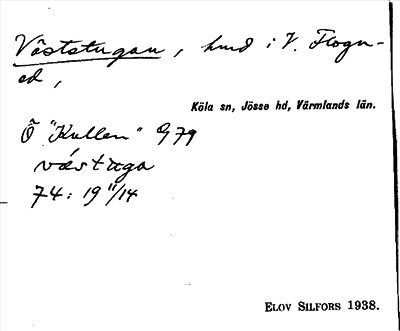 Väststugan, hmd i V. Flogn-
ed,
Köla sn, Jösse hd, Värmlands län.
Ö "Kullen" 979
västuga
74: 19 11/14
ELOV SILFORS 1938.